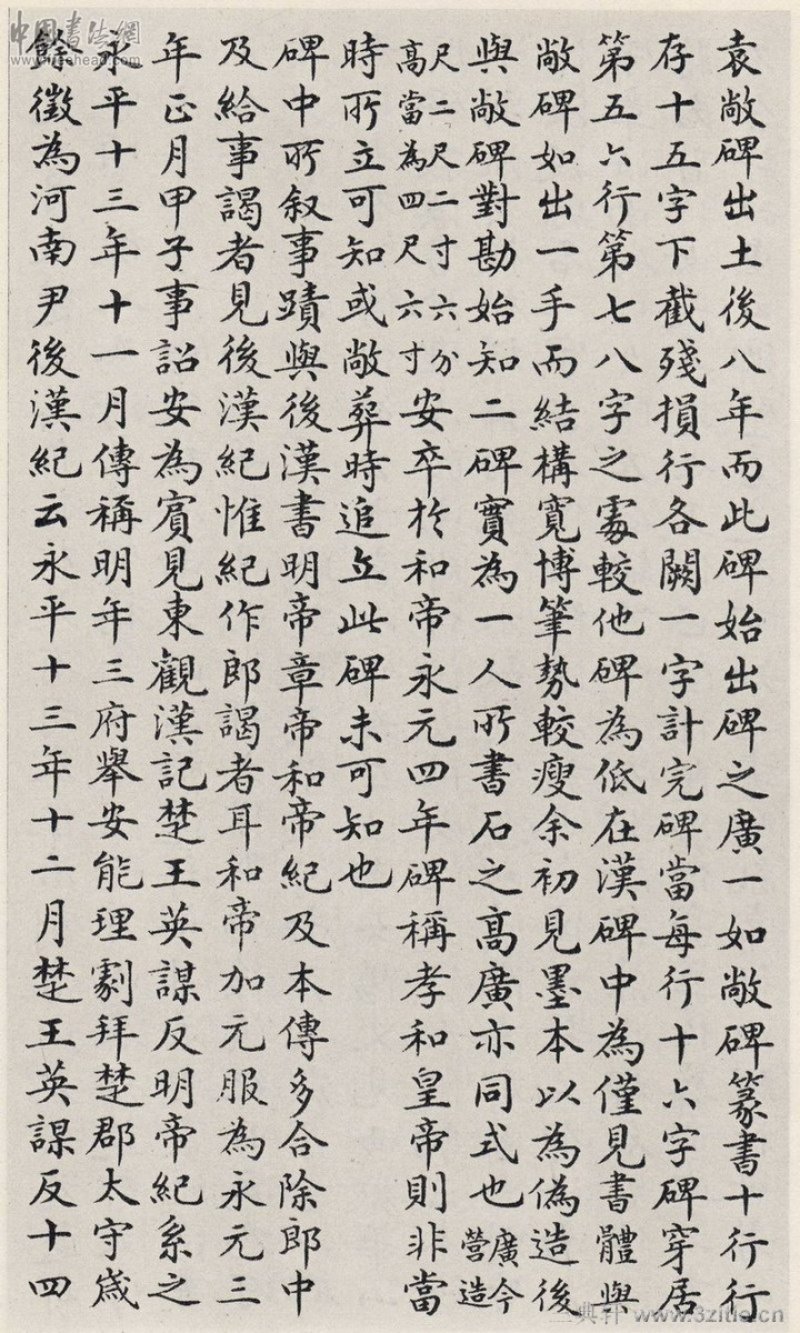 中国書法網
www.freehead.com
袁敞碑出土後八年而此碑始出碑之廣一如敞碑篆書十行行
存十五字下截殘損行各闕一字計完碑當每行十六字碑穿居
第五六行第七八字之處較他碑為低在漢碑中為僅見書體與
敞碑如出一手而結構寬博筆勢較瘦余初見墨本以為偽造後
與敞碑對勘始知二碑實為一人所書石之高廣亦同式也廣今營造
尺二尺二寸六分高當為四尺六寸安卒於和帝永元四年碑稱孝和皇帝則非當
時所立可知或敞葬時追立此碑未可知也
碑中所叙事蹟與後漢書明帝章帝和帝紀及本傳多合除郎中
及給事謁者見後漢紀惟紀作郎謁者耳和帝加元服為永元三
年正月甲子事詔安為賓見東觀漢記楚王英謀反明帝紀系之
永平十三年十一月傳稱明年三府舉安能理劇拜楚郡太守歲
餘徵為河南尹後漢紀云永平十三年十二月楚王英謀反十四
三典轩 www.3zitie.cn